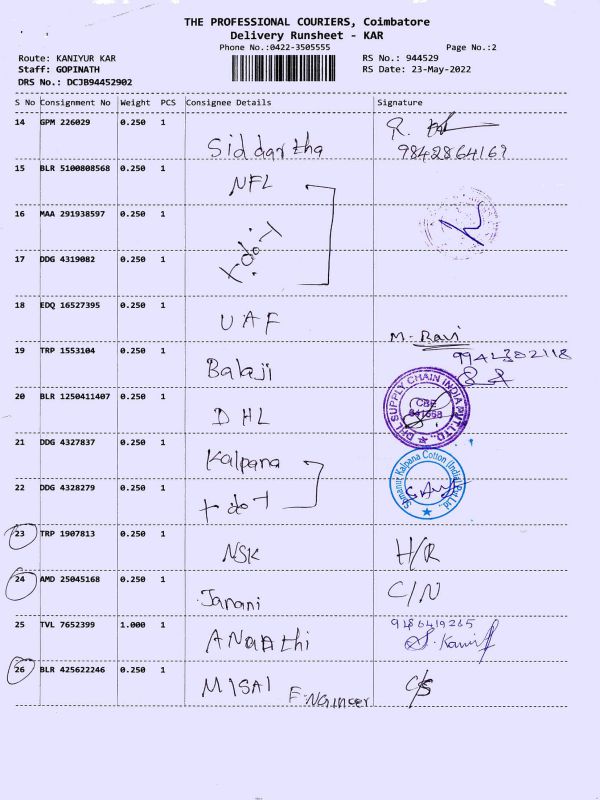 THE PROFESSIONAL COURIERS, Coimbatore
Delivery Runsheet - KAR
Phone No.:0422-3505555
Page No.:2
Route: KANIYUR KAR
RS No.: 944529
Staff: GOPINATH
RS Date: 23-May-2022
DRS No.: DCJB94452902
S No Consignment No Weight PCS Consignee Details Signature
14 GPM 226029 0.250 1 Siddartha R.
9842864169
15 BLR 5100808568 0.250 1 NFL
16 MAA 291938597 0.250 1
17 DDG 4319082 0.250 1
18 EDQ 16527395 0.250 1 UAF M. Ravi
19 TRP 1553104 0.250 1 Balaji
20 BLR 1250411407 0.250 1 DHL
DHL SUPPLY CHAIN INDIA PVT. LTD.
CBE
641658
21 DDG 4327837 0.250 1 Kalpana
Kalpana Cotton (India) Pvt Ltd.
22 DDG 4328279 0.250 1
23 TRP 1907813 0.250 1 NSK H/R
24 AMD 25045168 0.250 1 Janani C/N
25 TVL 7652399 1.000 1
9486419265
26 BLR 425622246 0.250 1 MISAI C/S